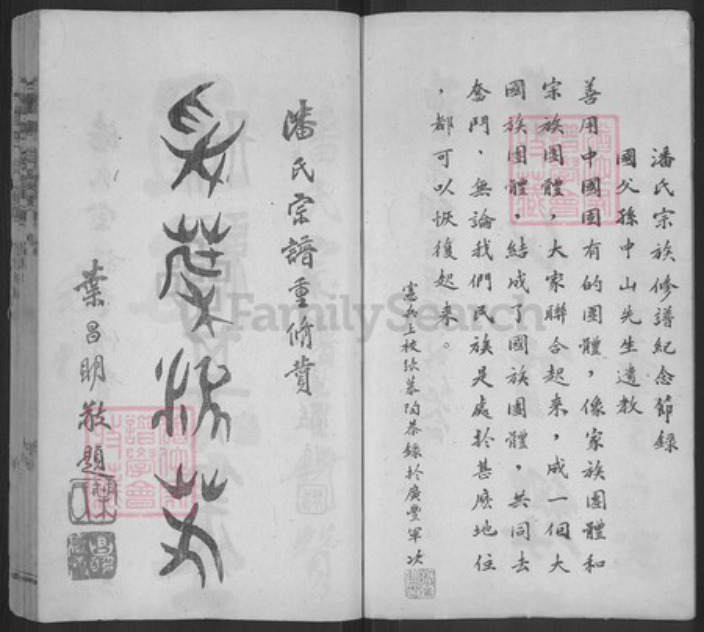 潘氏宗族修譜紀念節錄
國父孫中山先生遺教
善用中國固有的團體，像家族團體和
宗族團體，大家聯合起來，成一個大
國族團體，結成了國族團體，共同去
奮鬥、無論我們民族是處於甚麼地位
，都可以恢復起來。
憲兵上校張慕陶恭錄於廣豐軍次
潘氏宗譜重修賛
葉昌明敬題
FamilySearch